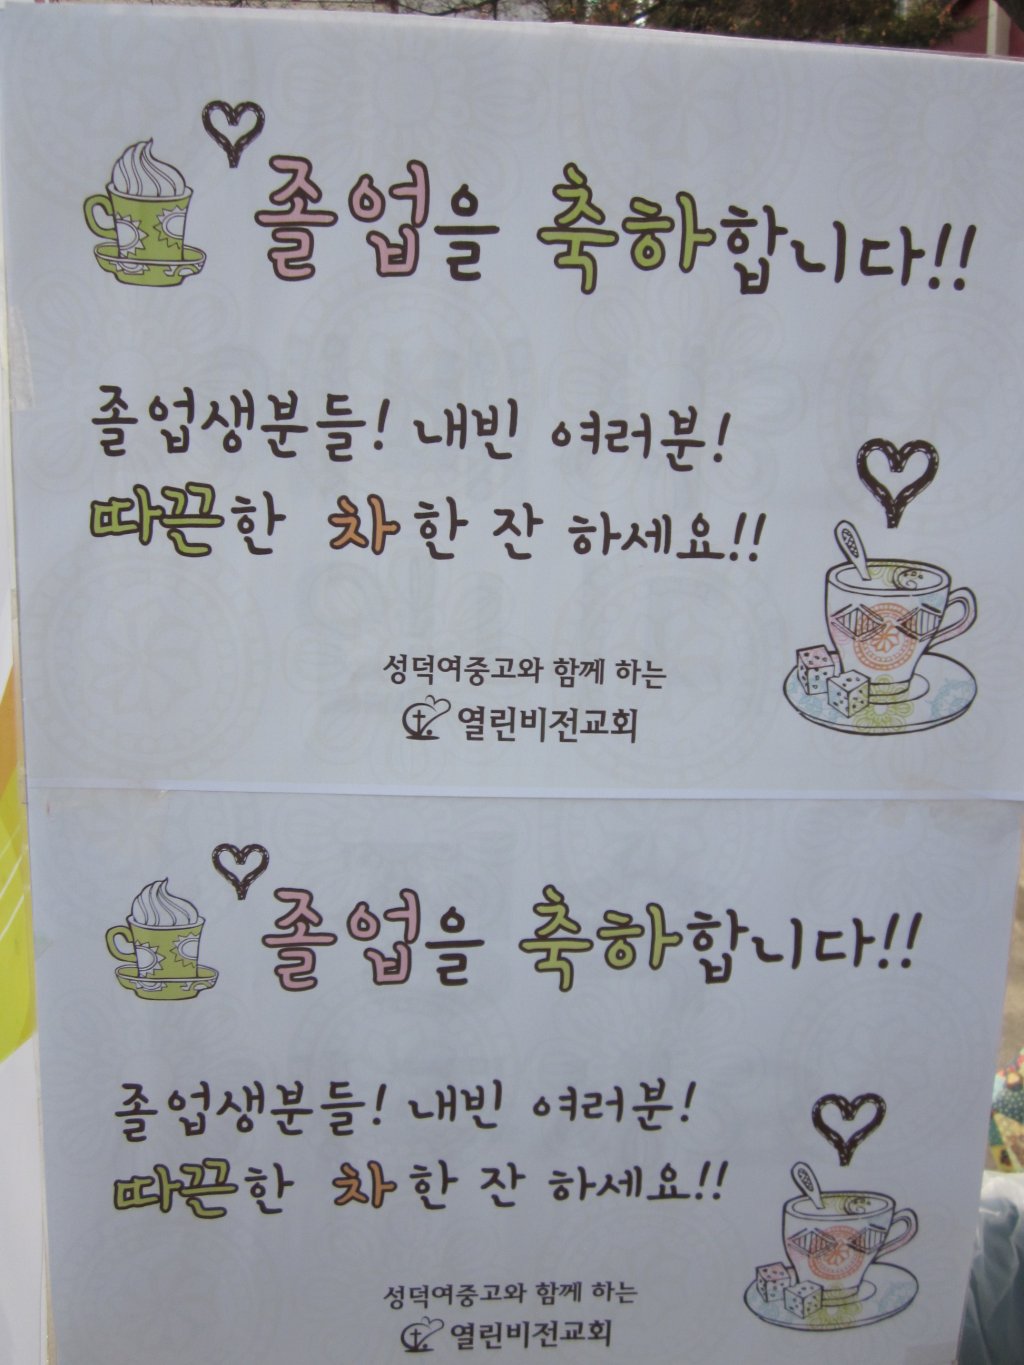 졸업을 축하합니다!!
졸업생분들! 내빈 여러분!
따끈한 차 한 잔 하세요!!
성덕여중고와 함께 하는
열린비전교회
졸업을 축하합니다!!
졸업생분들! 내빈 여러분!
따끈한 차 한 잔 하세요!!
성덕여중고와 함께 하는
열린비전교회